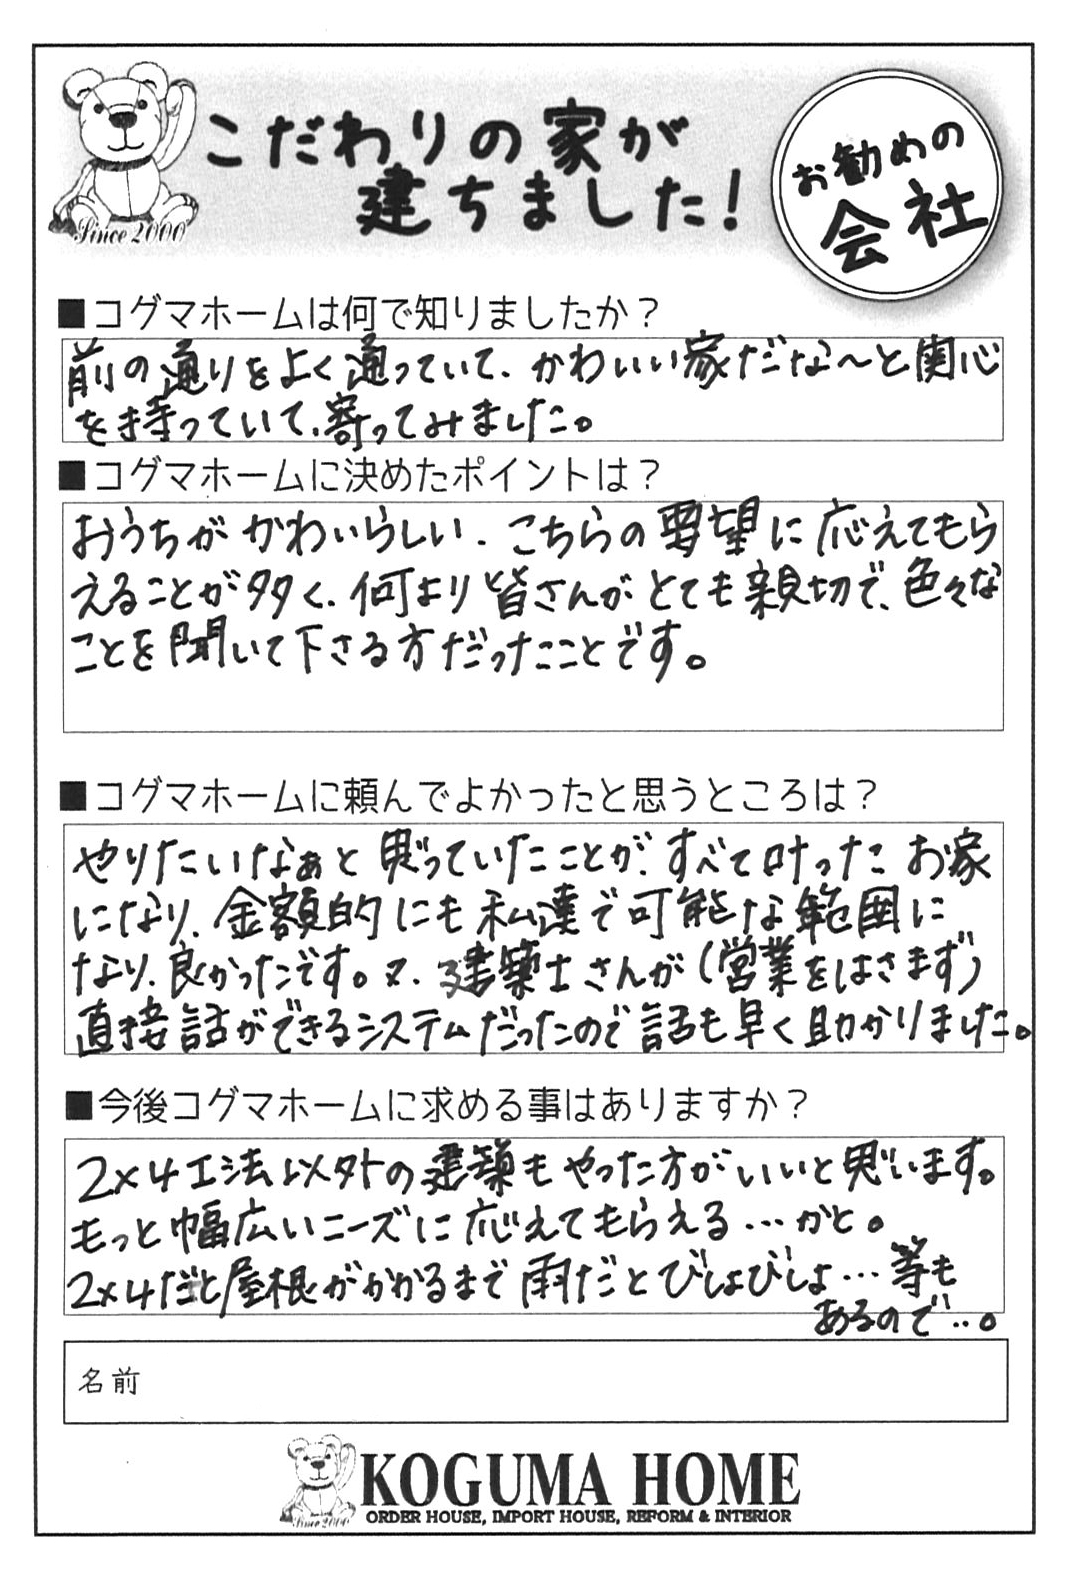 こだわりの家が
建ちました!
お勧めの
会社
Since 2000
■コグマホームは何で知りましたか?
前の通りをよく通っていて、かわいい家だな〜と関心
を持っていて、寄ってみました。
■コグマホームに決めたポイントは?
おうちがかわいらしい、こちらの要望に応えてもら
えることが多く、何より皆さんがとても親切で、色々な
ことを聞いて下さる方だったことです。
■コグマホームに頼んでよかったと思うところは?
やりたいなぁと思っていたことが、すべて叶ったお家
になり、金額的にも私達で可能な範囲に
なり、良かったです。又、建築士さんが(営業をはさまず)
直接話ができるシステムだったので話も早く助かりました。
■今後コグマホームに求める事はありますか?
2×4工法以外の建築もやった方がいいと思います。
もっと幅広いニーズに応えてもらえる…かと。
2×4だと屋根がかかるまで雨だとびしょびしょ…等も
あるので…。
名前
KOGUMA HOME
ORDER HOUSE, IMPORT HOUSE, REFORM & INTERIOR
Since 2000